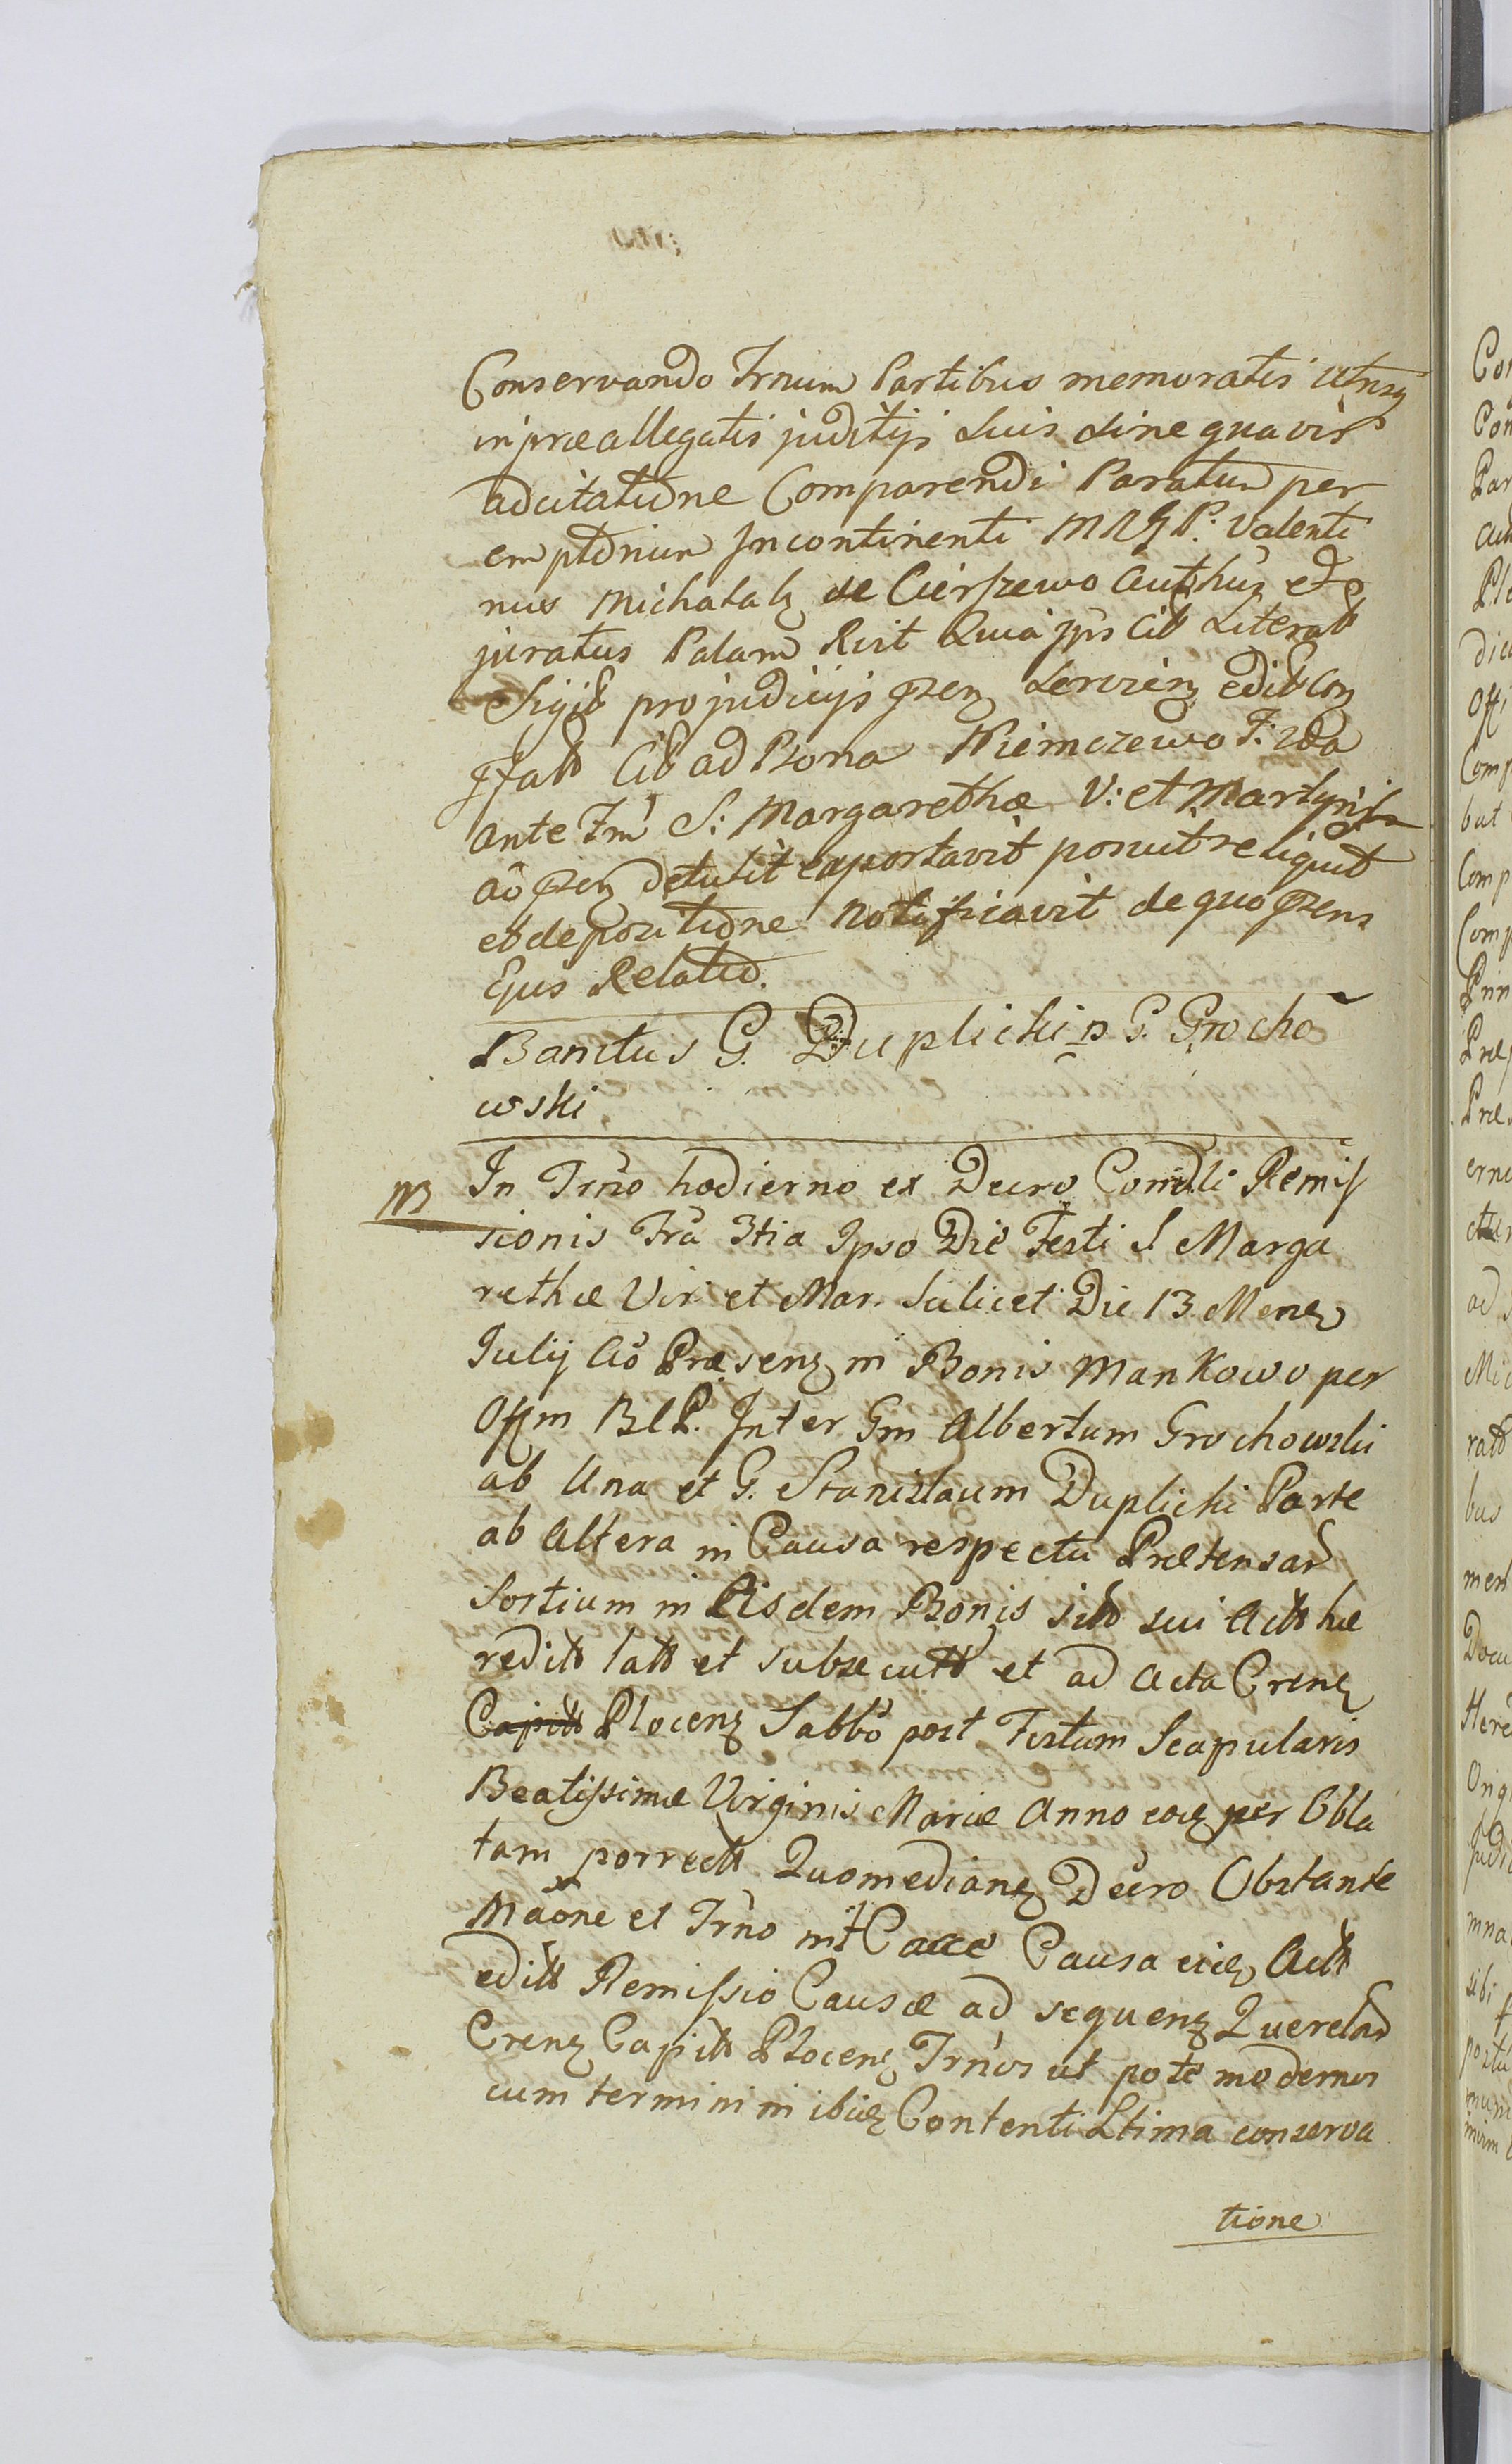 Conservando Trnum Partibus memoratis utrisq
in præallegatis juditijs suis sine quavis
adcitatione Comparendi Paratum per
emptorium Incontinenti MRGP. Valenti
nus Michalak de Cierszewo Authus et
juratus Palam Rvit Quia jps Cit Literat
Sigil pro judicijs pren Terrien edit Con
ffatt Cit ad Bona Niemczewo F: 2da
ante Fm S: Margarethæ V: et Martyris
ao pren detulit exportavit ponuit reliquit
et de positione notificavit de quo prens
Ejus Relatio.
Banitus G. Duplicki n G. Grocho
wski
NB In Trno hodierno ex Decro Condli Remis
sionis Fra 3tia Ipso Die Festi S Marga
rethæ Vir. et Mar. Scilicet Die 13 Mens
Julij Ao Præsenz in Bonis Mankowo per
Offm BLP. Inter Gm Albertum Grochowski
ab Una et G. Stanislaum Duplicki Parte
ab Altera in Causa respectu Prætensar
Sortium in Eisdem Bonis sitt sui Actt hæ
reditt latt et subsecutt et ad Acta Crenz
Capitt Plocenz Sabbo post Festum Scapularis
Beatissimæ Virginis Mariæ Anno eoz per Obla
tam porrectt Quomedianz Decro Obstante
Maone et Trno int Cacce Causa eiz Actt
editt Remissio Causæ ad sequenz Querelar
Crenz Capitt Plocenz Trnos ut pote modernos
cum termini in ibiz Contenti Ltima conserva
tione